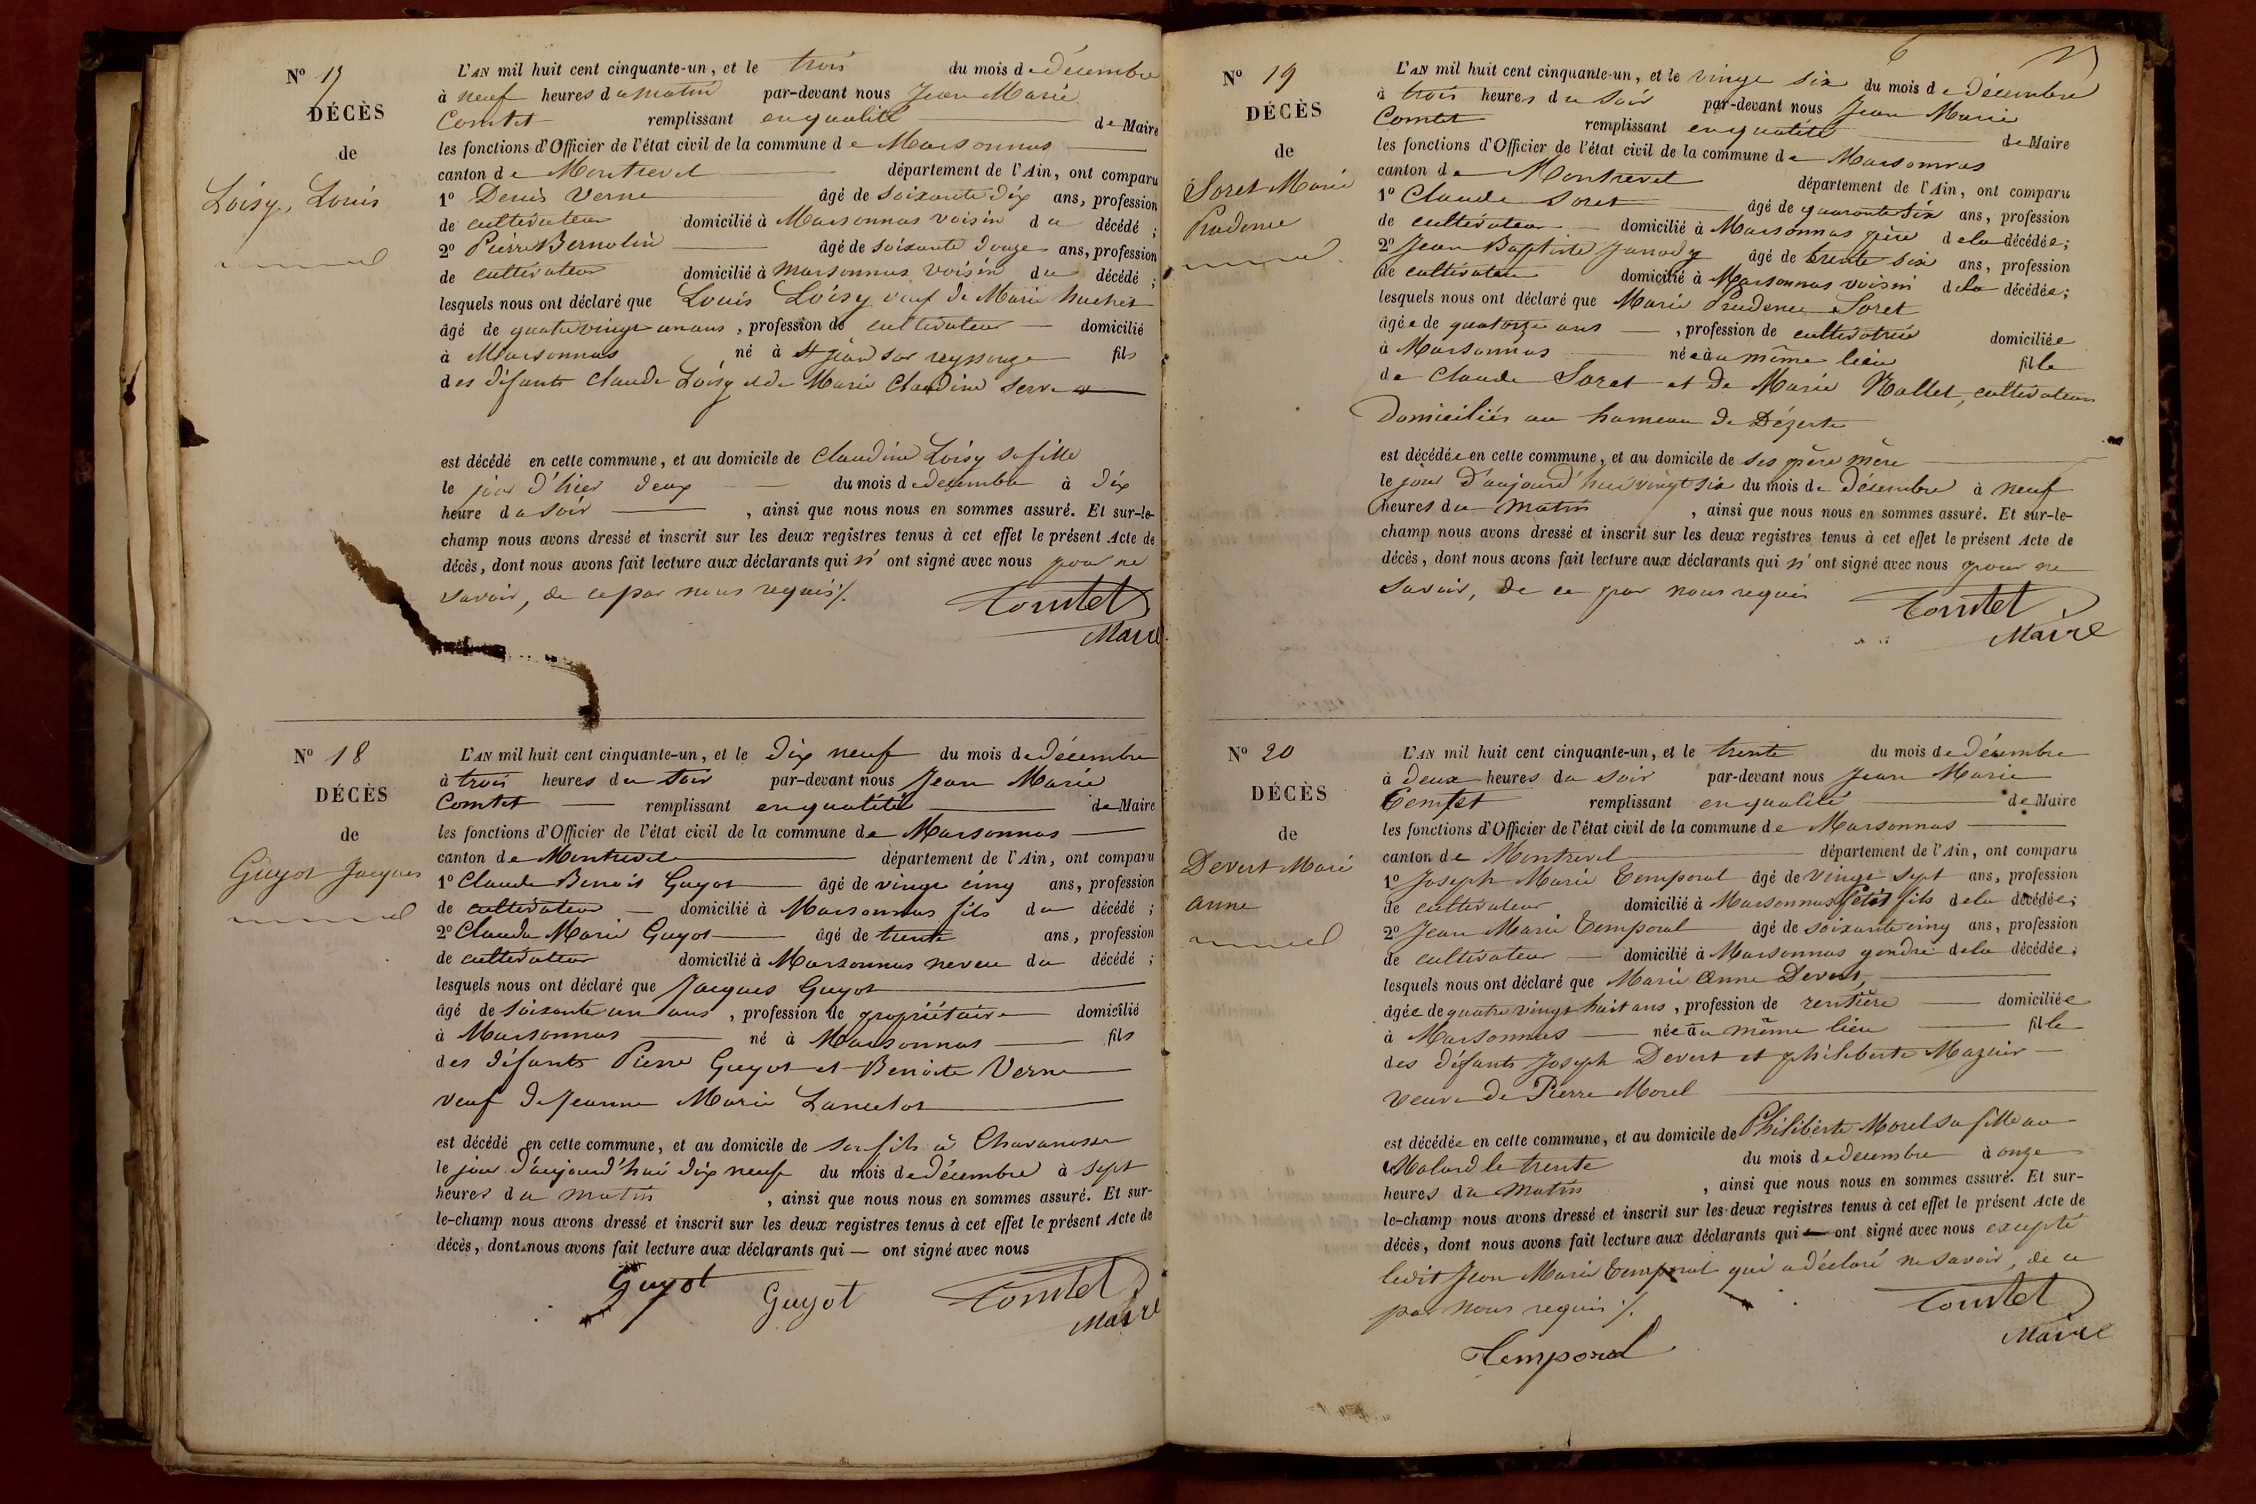 Nº 17
DÉCÈS
de
Loisy, Louis
L'AN mil huit cent cinquante-un, et le trois du mois de décembre
à neuf heures du matin par-devant nous Jean Marie
Comtet remplissant en qualité de Maire
les fonctions d'Officier de l'état civil de la commune de Marsonnas
canton de Montrevel département de l'Ain, ont comparu
1º Denis Verne âgé de soixante dix ans, profession
de cultivateur domicilié à Marsonnas voisin du décédé ;
2º Pierre Bernolin âgé de soixante douze ans, profession
de cultivateur domicilié à Marsonnas voisin du décédé ;
lesquels nous ont déclaré que Louis Loisy veuf de Marie huchet
âgé de quatre vingt un ans, profession de cultivateur domicilié
à Marsonnas né à St jean sur reyssouze fils
des défunts Claude Loisy et de Marie Claudine Serve
est décédé en cette commune, et au domicile de Claudine Loisy sa fille
le jour d'hier deux du mois de décembre à dix
heure du soir, ainsi que nous nous en sommes assuré. Et sur-le-
champ nous avons dressé et inscrit sur les deux registres tenus à cet effet le présent Acte de
décès, dont nous avons fait lecture aux déclarants qui n'ont signé avec nous pour ne
savoir, de ce par nous requis ./.
Comtet
Maire
Nº 18
DÉCÈS
de
Guyot Jacques
L'AN mil huit cent cinquante-un, et le dix neuf du mois de décembre
à trois heures du soir par-devant nous Jean Marie
Comtet remplissant en qualité de Maire
les fonctions d'Officier de l'état civil de la commune de Marsonnas
canton de Montrevel département de l'Ain, ont comparu
1º Claude Benoit Guyot âgé de vingt cinq ans, profession
de cultivateur domicilié à Marsonnas fils du décédé ;
2º Claude Marie Guyot âgé de trente ans, profession
de cultivateur domicilié à Marsonnas neveu du décédé ;
lesquels nous ont déclaré que Jacques Guyot
âgé de soixante un ans, profession de propriétaire domicilié
à Marsonnas né à Marsonnas fils
des défunts Pierre Guyot et Benoite Verne
veuf de Jeanne Marie Lancelot
est décédé en cette commune, et au domicile de son fils à Chavanosse
le jour d'aujourd'hui dix neuf du mois de décembre à sept
heures du matin, ainsi que nous nous en sommes assuré. Et sur-
le-champ nous avons dressé et inscrit sur les deux registres tenus à cet effet le présent Acte de
décès, dont nous avons fait lecture aux déclarants qui — ont signé avec nous
Guyot Guyot Comtet
Maire
6
Nº 19
DÉCÈS
de
Soret Marie
Prudence
L'AN mil huit cent cinquante-un, et le vingt six du mois de décembre
à trois heures du soir par-devant nous Jean Marie
Comtet remplissant en qualité de Maire
les fonctions d'Officier de l'état civil de la commune de Marsonnas
canton de Montrevel département de l'Ain, ont comparu
1º Claude Soret âgé de quarante six ans, profession
de cultivateur domicilié à Marsonnas père de la décédée ;
2º Jean Baptiste âgé de trente six ans, profession
de cultivateur domicilié à Marsonnas voisin de la décédée ;
lesquels nous ont déclaré que Marie Prudence Soret
âgée de quatorze ans, profession de cultivatrice domiciliée
à Marsonnas née au même lieu fille
de Claude Soret et de Marie Rollet, cultivateurs
domiciliés au hameau de Dézerte
est décédée en cette commune, et au domicile de ses père mère
le jour d'aujourd'hui vingt six du mois de décembre à neuf
heures du matin, ainsi que nous nous en sommes assuré. Et sur-le-
champ nous avons dressé et inscrit sur les deux registres tenus à cet effet le présent Acte de
décès, dont nous avons fait lecture aux déclarants qui n'ont signé avec nous pour ne
savoir, de ce par nous requis
Comtet
Maire
Nº 20
DÉCÈS
de
Devert Marie
anne
L'AN mil huit cent cinquante-un, et le trente du mois de décembre
à deux heures du soir par-devant nous Jean Marie
Comtet remplissant en qualité de Maire
les fonctions d'Officier de l'état civil de la commune de Marsonnas
canton de Montrevel département de l'Ain, ont comparu
1º Joseph Marie Temporal âgé de vingt sept ans, profession
de cultivateur domicilié à Marsonnas petit fils de la décédée ;
2º Jean Marie Temporal âgé de soixante cinq ans, profession
de cultivateur domicilié à Marsonnas gendre de la décédée ;
lesquels nous ont déclaré que Marie Anne Devert,
âgée de quatre vingt huit ans, profession de rentière domiciliée
à Marsonnas née au même lieu fille
des défunts Joseph Devert et philiberte Mazuir
veuve de Pierre Morel
est décédée en cette commune, et au domicile de Philiberte Morel sa fille au
Molard le trente du mois de décembre à onze
heures du matin, ainsi que nous nous en sommes assuré. Et sur-
le-champ nous avons dressé et inscrit sur les deux registres tenus à cet effet le présent Acte de
décès, dont nous avons fait lecture aux déclarants qui — ont signé avec nous excepté
ledit Jean Marie Temporal qui a déclaré ne savoir, de ce
par nous requis ./.
Comtet
Maire
Temporal